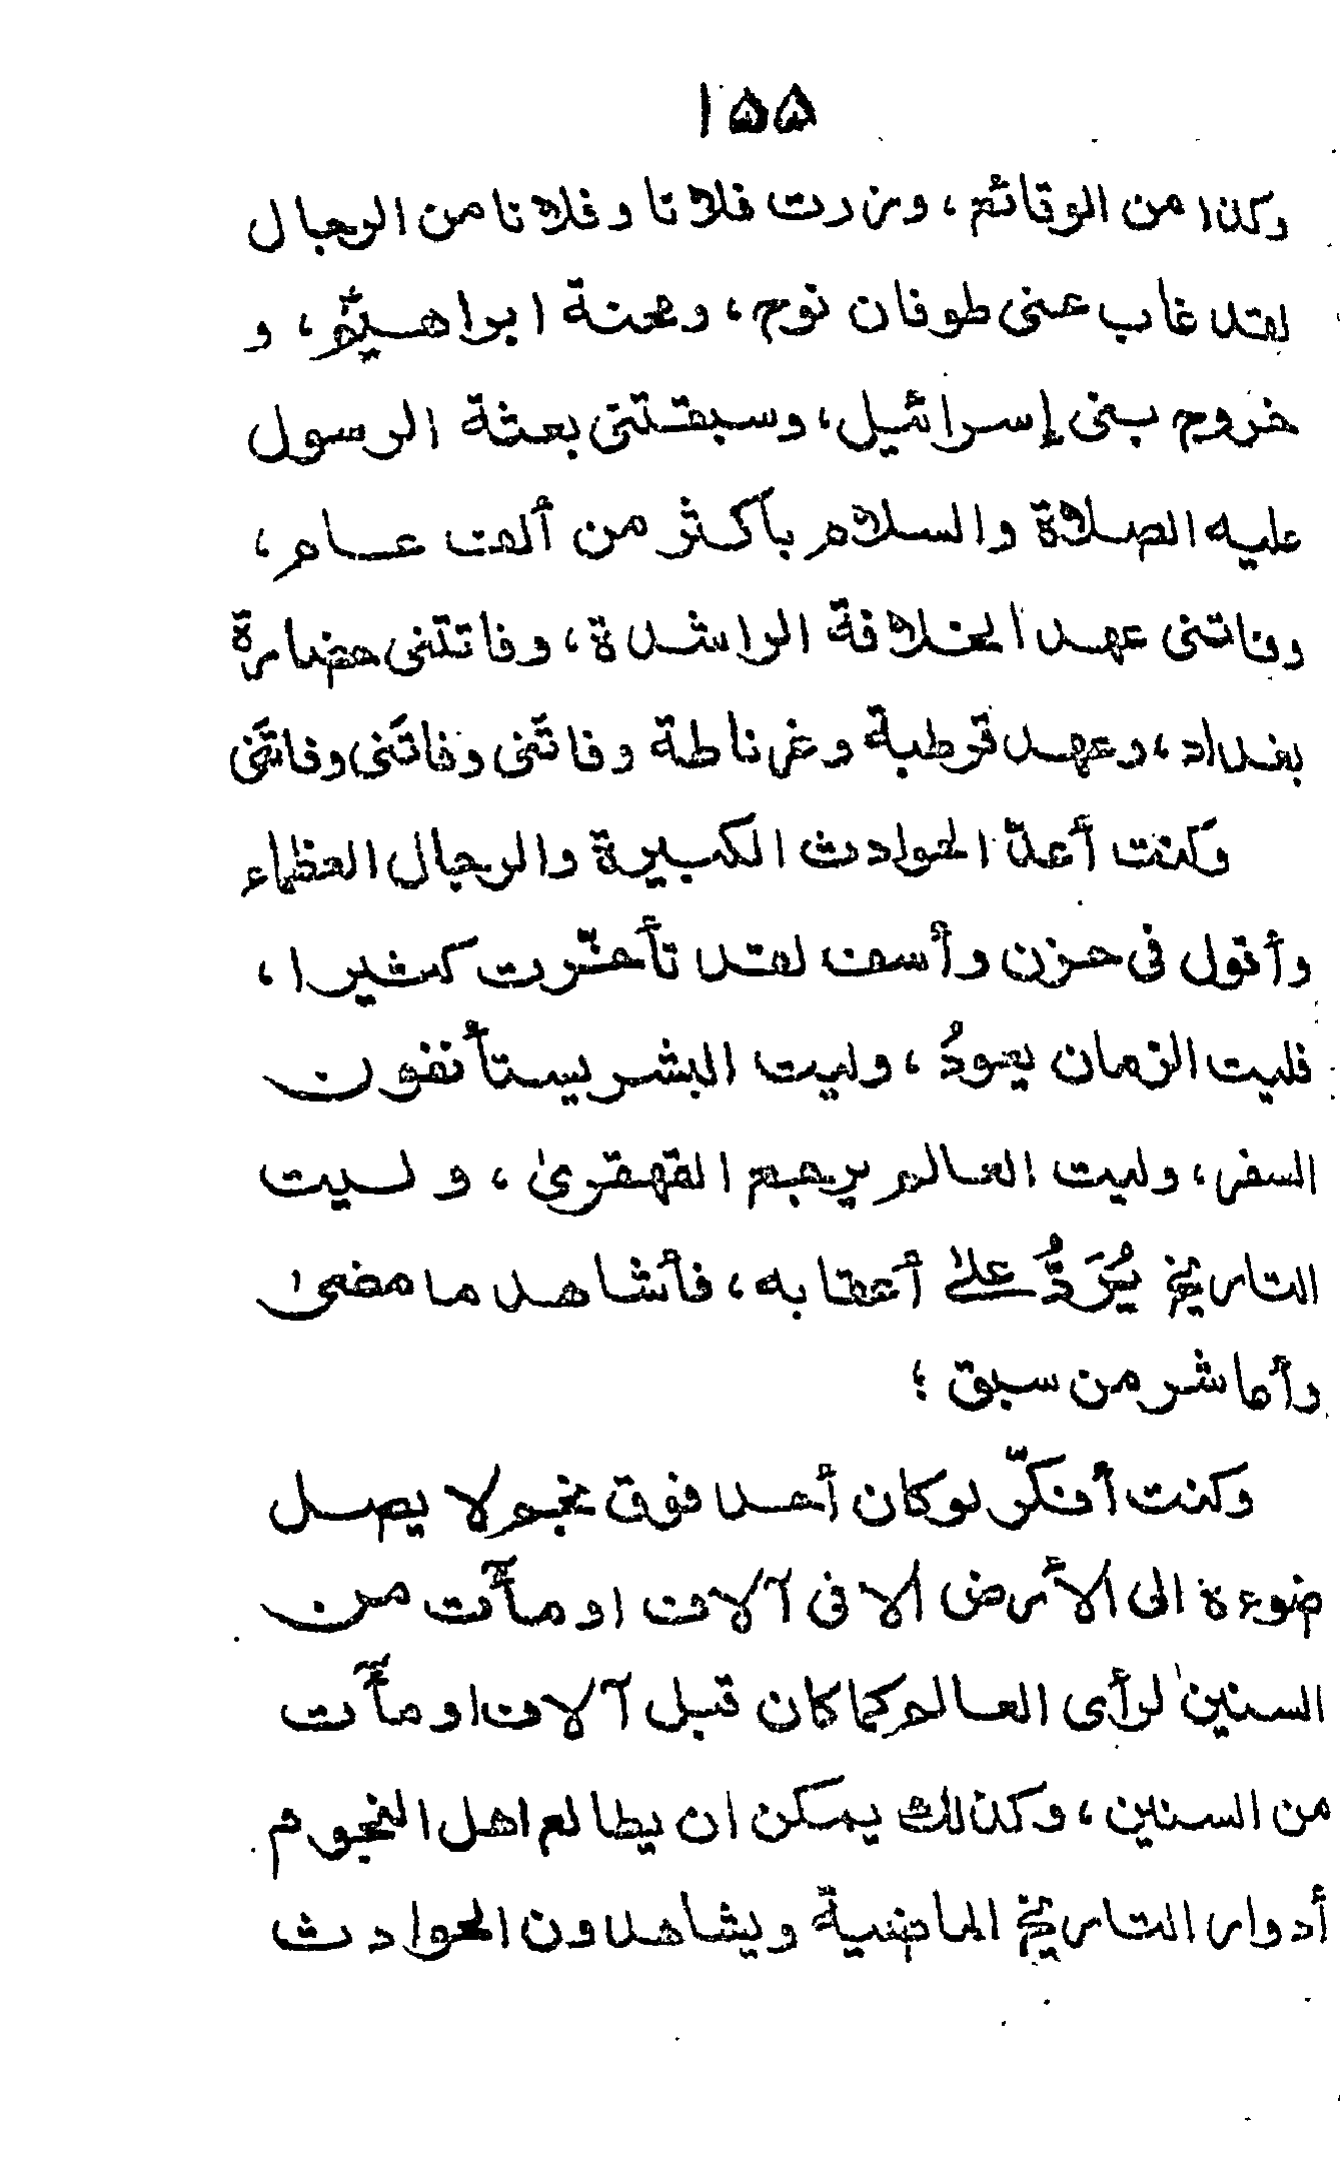 ١٥٥
وكذا من الوقائع، وزرت فلانا وفلانا من الرجال
لقد غاب عنى طوفان نوح، ومحنة ابراهيمؑ، و
خروج بنى إسرائيل، وسبقتنى بعثة الرسول
عليه الصلاة والسلام بأكثر من ألف عام،
وفاتنى عهد الخلافة الراشدة، وفاتتنى حضارة
بغداد، وعهد قرطبة وغرناطة وفاتنى وفاتنى وفاتنى
وكنت أعدّ الحوادث الكبيرة والرجال العظماء
وأقول فى حزن وأسف لقد تأخّرت كثيرا،
فليت الزمان يعودُ، وليت البشر يستأنفون
السفر، وليت العالم يرجع القهقرىٰ، وليت
التاريخ يُرَدُّ علىٰ أعقابه، فأشاهد ما مضىٰ
وأعاشر من سبق؛
وكنت أفكّر لوكان أحد فوق نجم لا يصل
ضوءه الى الأرض إلا فى آلاف او مآت من
السنين لرأى العالم كما كان قبل آلاف او مآت
من السنين، وكذالك يمكن ان يطالع اهل النجوم
أدوار التاريخ الماضية ويشاهدون الحوادث